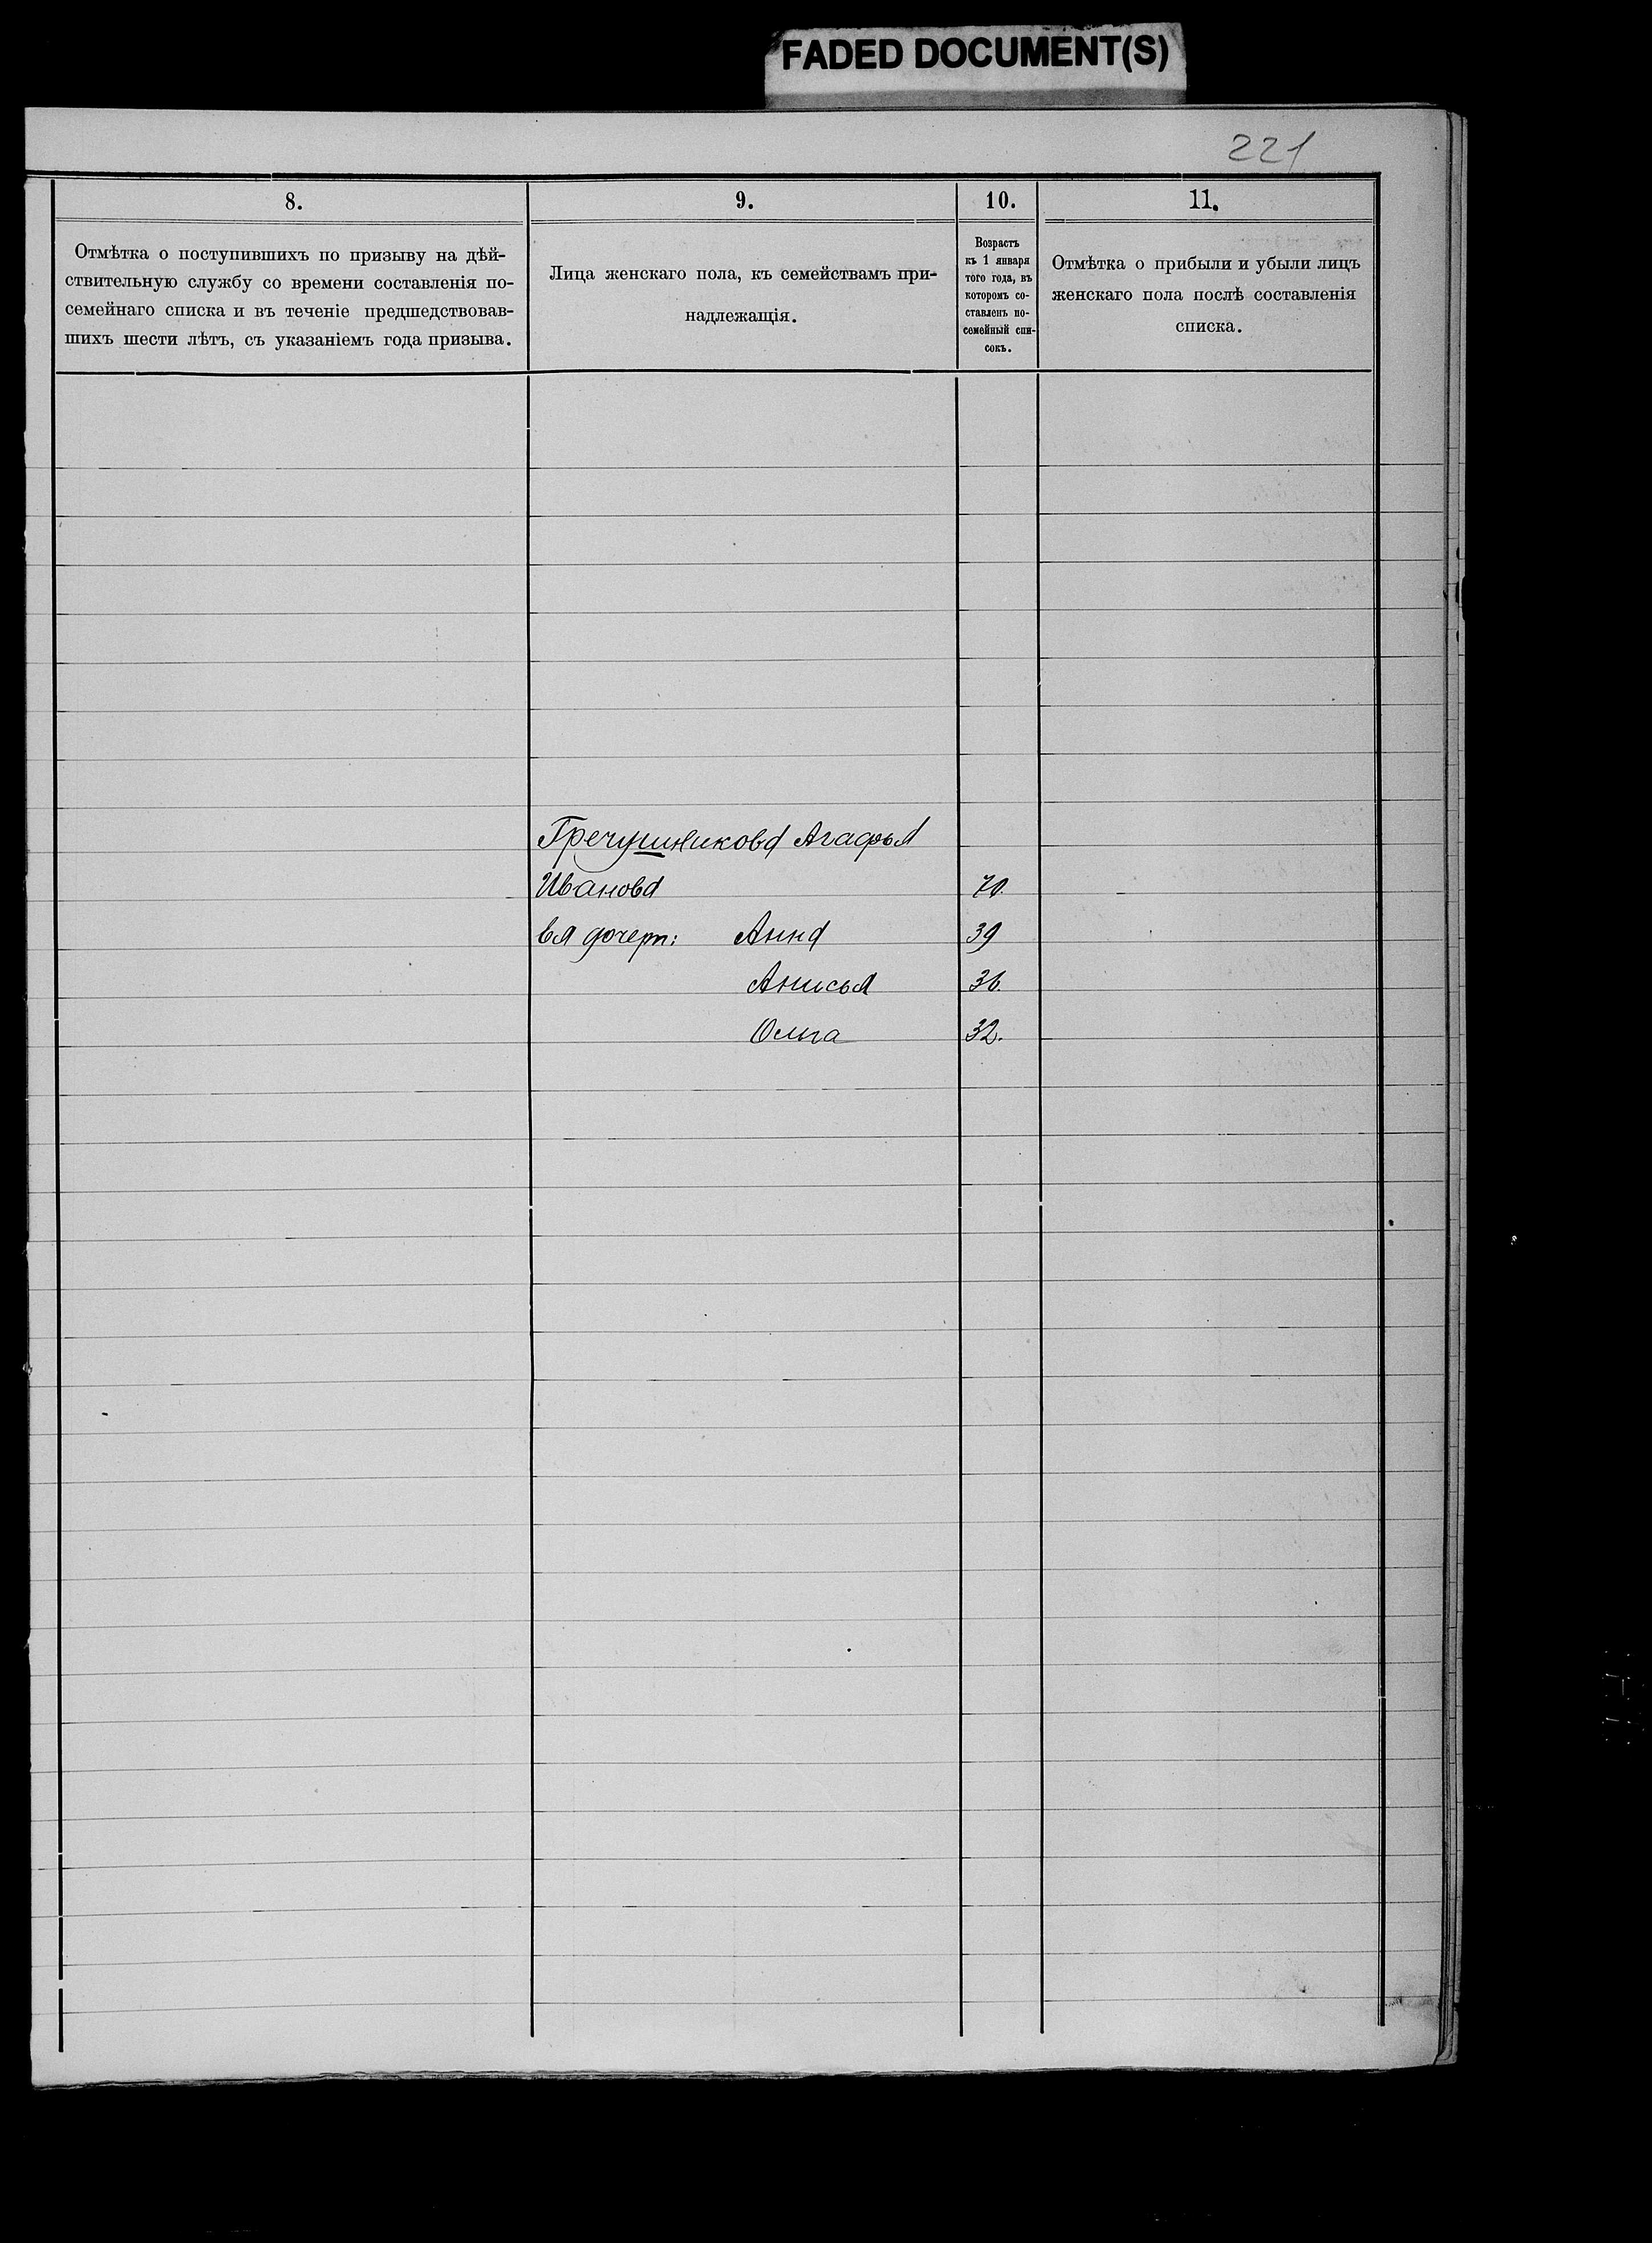 FADED DOCUMENT(S)
221
8.
9.
10.
11.
Отмѣтка о поступившихъ по призыву на дѣй-
ствительную службу со времени составленія по-
семейнаго списка и въ теченіе предшедствовав-
шихъ шести лѣтъ, съ указаніемъ года призыва.
Лица женскаго пола, къ семействамъ при-
надлежащія.
Возрастъ
къ 1 января
того года, въ
которомъ со-
ставленъ по-
семейный спи-
сокъ.
Отмѣтка о прибыли и убыли лицъ
женскаго пола послѣ составленія
списка.
Гречушникова Агафья
Иванова 70.
Ея дочери: Анна 39
Анисья 36.
Ольга 32.